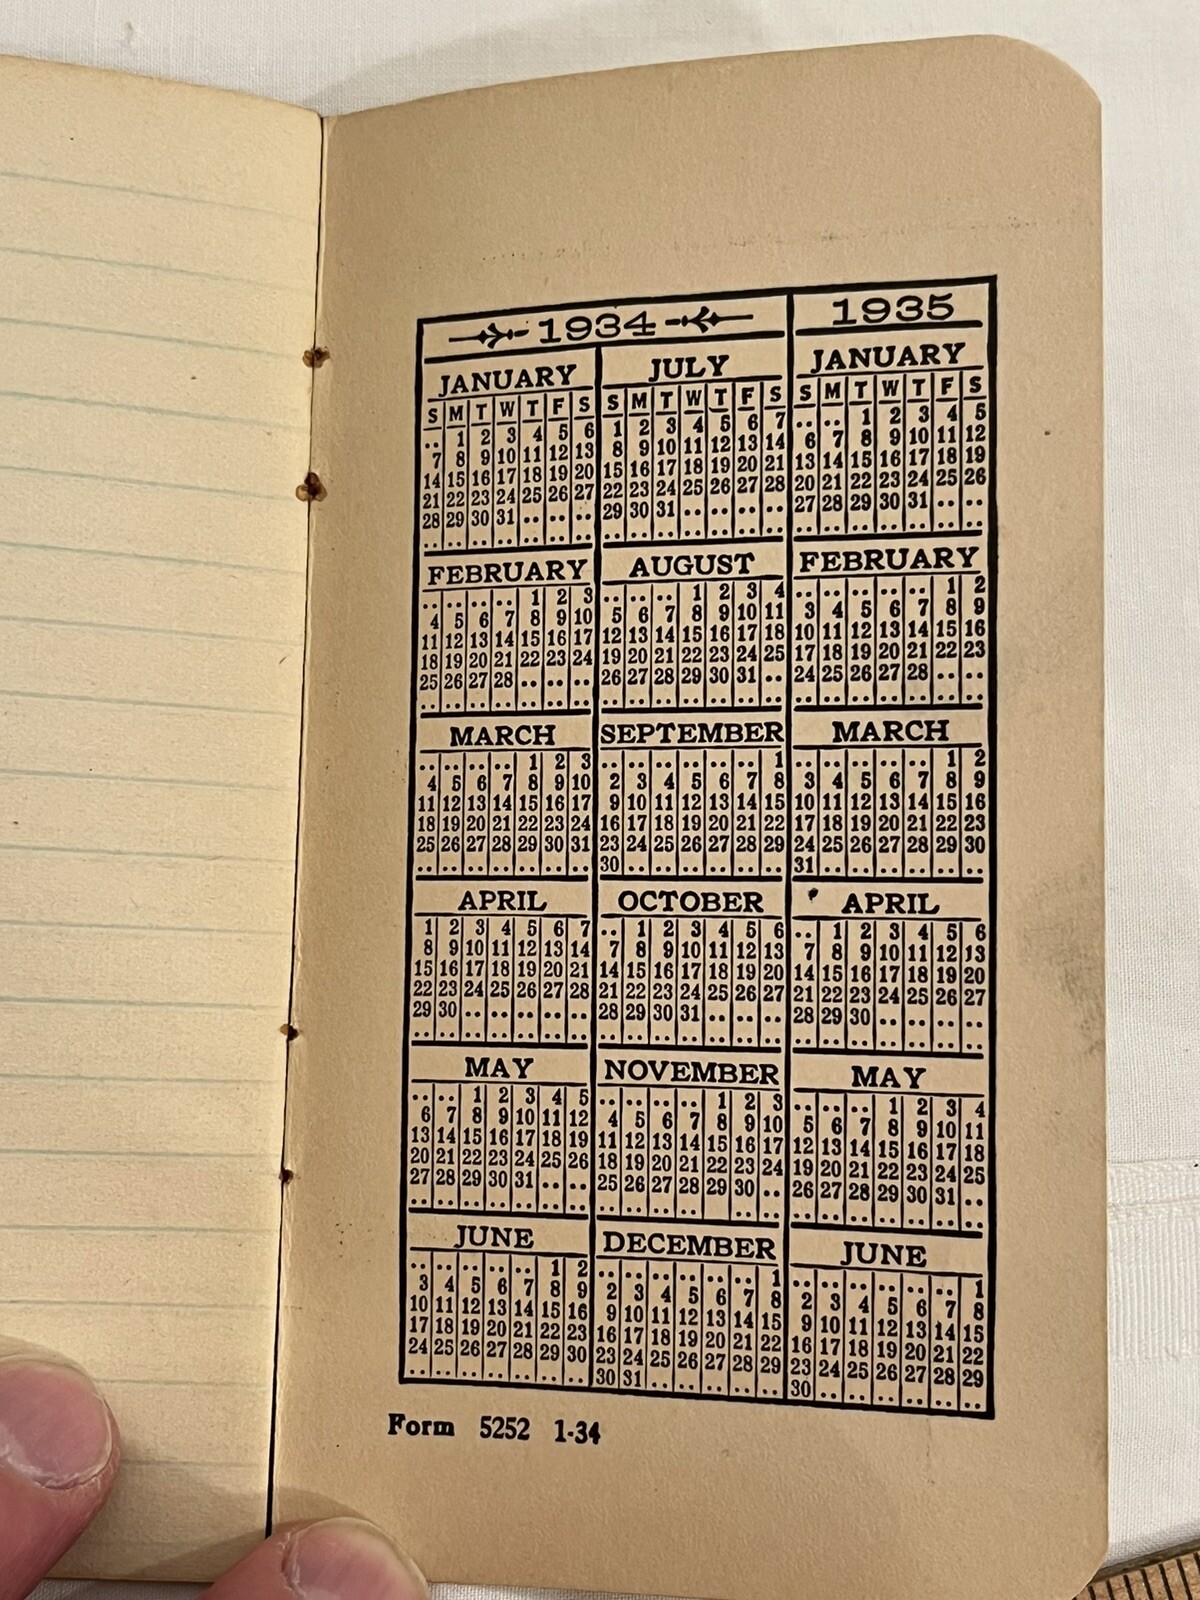 1934
JANUARY
S M T W T F S
.. 1 2 3 4 5 6
7 8 9 10 11 12 13
14 15 16 17 18 19 20
21 22 23 24 25 26 27
28 29 30 31 .. .. ..
.. .. .. .. .. .. ..
FEBRUARY
.. .. .. .. 1 2 3
4 5 6 7 8 9 10
11 12 13 14 15 16 17
18 19 20 21 22 23 24
25 26 27 28 .. .. ..
.. .. .. .. .. .. ..
MARCH
.. .. .. .. 1 2 3
4 5 6 7 8 9 10
11 12 13 14 15 16 17
18 19 20 21 22 23 24
25 26 27 28 29 30 31
.. .. .. .. .. .. ..
APRIL
1 2 3 4 5 6 7
8 9 10 11 12 13 14
15 16 17 18 19 20 21
22 23 24 25 26 27 28
29 30 .. .. .. .. ..
.. .. .. .. .. .. ..
MAY
.. .. 1 2 3 4 5
6 7 8 9 10 11 12
13 14 15 16 17 18 19
20 21 22 23 24 25 26
27 28 29 30 31 .. ..
.. .. .. .. .. .. ..
JUNE
.. .. .. .. .. 1 2
3 4 5 6 7 8 9
10 11 12 13 14 15 16
17 18 19 20 21 22 23
24 25 26 27 28 29 30
.. .. .. .. .. .. ..
JULY
S M T W T F S
1 2 3 4 5 6 7
8 9 10 11 12 13 14
15 16 17 18 19 20 21
22 23 24 25 26 27 28
29 30 31 .. .. .. ..
.. .. .. .. .. .. ..
AUGUST
.. .. .. 1 2 3 4
5 6 7 8 9 10 11
12 13 14 15 16 17 18
19 20 21 22 23 24 25
26 27 28 29 30 31 ..
.. .. .. .. .. .. ..
SEPTEMBER
.. .. .. .. .. .. 1
2 3 4 5 6 7 8
9 10 11 12 13 14 15
16 17 18 19 20 21 22
23 24 25 26 27 28 29
30 .. .. .. .. .. ..
OCTOBER
.. 1 2 3 4 5 6
7 8 9 10 11 12 13
14 15 16 17 18 19 20
21 22 23 24 25 26 27
28 29 30 31 .. .. ..
.. .. .. .. .. .. ..
NOVEMBER
.. .. .. .. 1 2 3
4 5 6 7 8 9 10
11 12 13 14 15 16 17
18 19 20 21 22 23 24
25 26 27 28 29 30 ..
.. .. .. .. .. .. 
DECEMBER
.. .. .. .. .. .. 1
2 3 4 5 6 7 8
9 10 11 12 13 14 15
16 17 18 19 20 21 22
23 24 25 26 27 28 29
30 31 .. .. .. .. ..
1935
JANUARY
S M T W T F S
.. .. 1 2 3 4 5
6 7 8 9 10 11 12
13 14 15 16 17 18 19
20 21 22 23 24 25 26
27 28 29 30 31 .. ..
.. .. .. .. .. .. ..
FEBRUARY
.. .. .. .. .. 1 2
3 4 5 6 7 8 9
10 11 12 13 14 15 16
17 18 19 20 21 22 23
24 25 26 27 28 .. ..
.. .. .. .. .. .. ..
MARCH
.. .. .. .. .. 1 2
3 4 5 6 7 8 9
10 11 12 13 14 15 16
17 18 19 20 21 22 23
24 25 26 27 28 29 30
31 .. .. .. .. .. ..
APRIL
.. 1 2 3 4 5 6
7 8 9 10 11 12 13
14 15 16 17 18 19 20
21 22 23 24 25 26 27
28 29 30 .. .. .. ..
.. .. .. .. .. .. ..
MAY
.. .. .. 1 2 3 4
5 6 7 8 9 10 11
12 13 14 15 16 17 18
19 20 21 22 23 24 25
26 27 28 29 30 31 ..
.. .. .. .. .. .. ..
JUNE
.. .. .. .. .. .. 1
2 3 4 5 6 7 8
9 10 11 12 13 14 15
16 17 18 19 20 21 22
23 24 25 26 27 28 29
30 .. .. .. .. .. ..
Form 5252 1-34